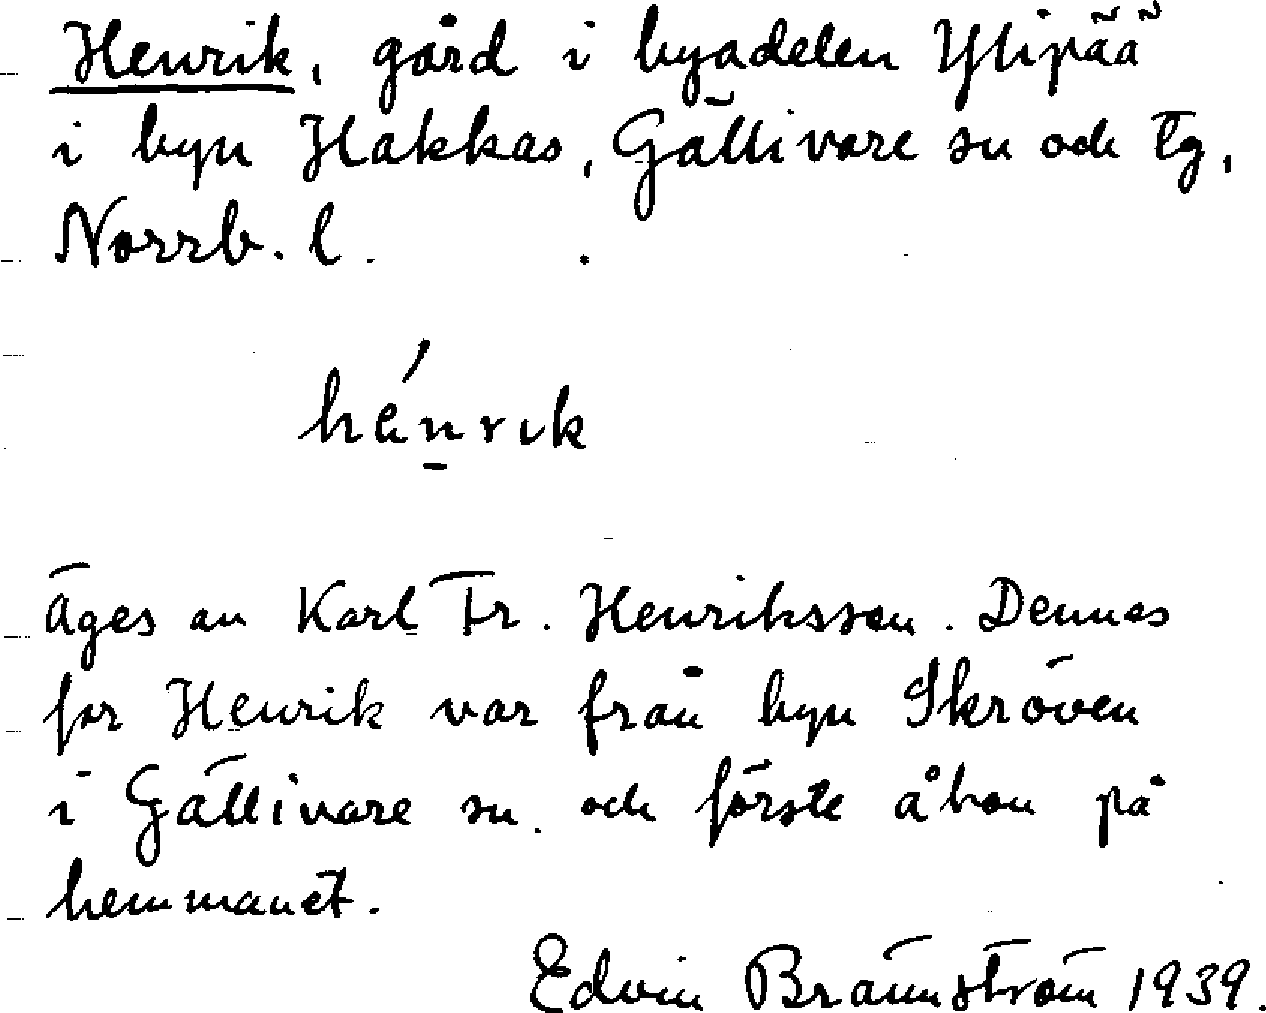 Henrik, gård i byadelen Ylipää
i byn Hakkas, Gällivare sn och tg,
Norrb. l.
hénrik
Äges av Karl Fr. Henriksson. Dennes
far Henrik var från byn Skröven
i Gällivare sn. och förste åbon på
hemmanet.
Edvin Brännström 1939.